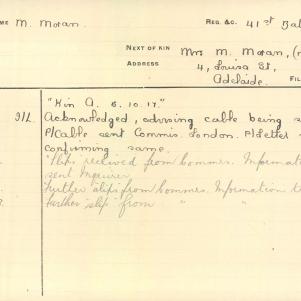 ME M. Moran. REG. &C. 41st Bat
NEXT OF KIN Mrs M. Moran, (
ADDRESS 4, Louisa St,
Adelaide. FIL
"Kin A. 6.10.17."
Acknowledged, advising cable being s
P/Cable sent Commis. London. P/Letter
confirming same.
Slips received from Commrs. Informati
sent Inquirer.
Further slips from Commrs. Information t
Further slip from " "